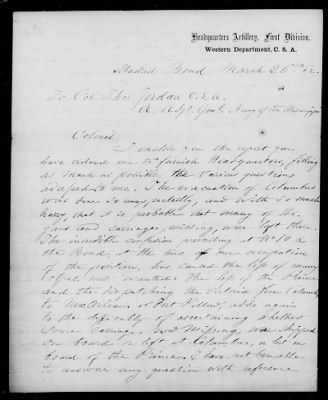 Headquarters Artillery, First Division,
Western Department, C. S. A.
Madrid Bend March 26th 62.
To Col. Thos Jordan C.S.A.
A. Adgt. Genl. Army of the Mississippi
Colonel
I enclose you the report you
have ordered me to furnish Headquarters, filling
as much as possible the various questions
to me. The evacuation of Columbus
was done so unexpectedly, and with so much
hurry, that it is probable that many of the
guns and carriages, missing, were left there.
The incredible confusion prevailing at No 10 &
the Bend, at the time of our occupation
of the position, has caused the loss of many
and the
and the
to New Orleans or Fort Pillow, adds again
to the difficulty of ascertaining whether
some carriages now missing, was shipped
on board or left at Columbus, or lost on
board of the Prince. I have not been able
to answer any question with reference